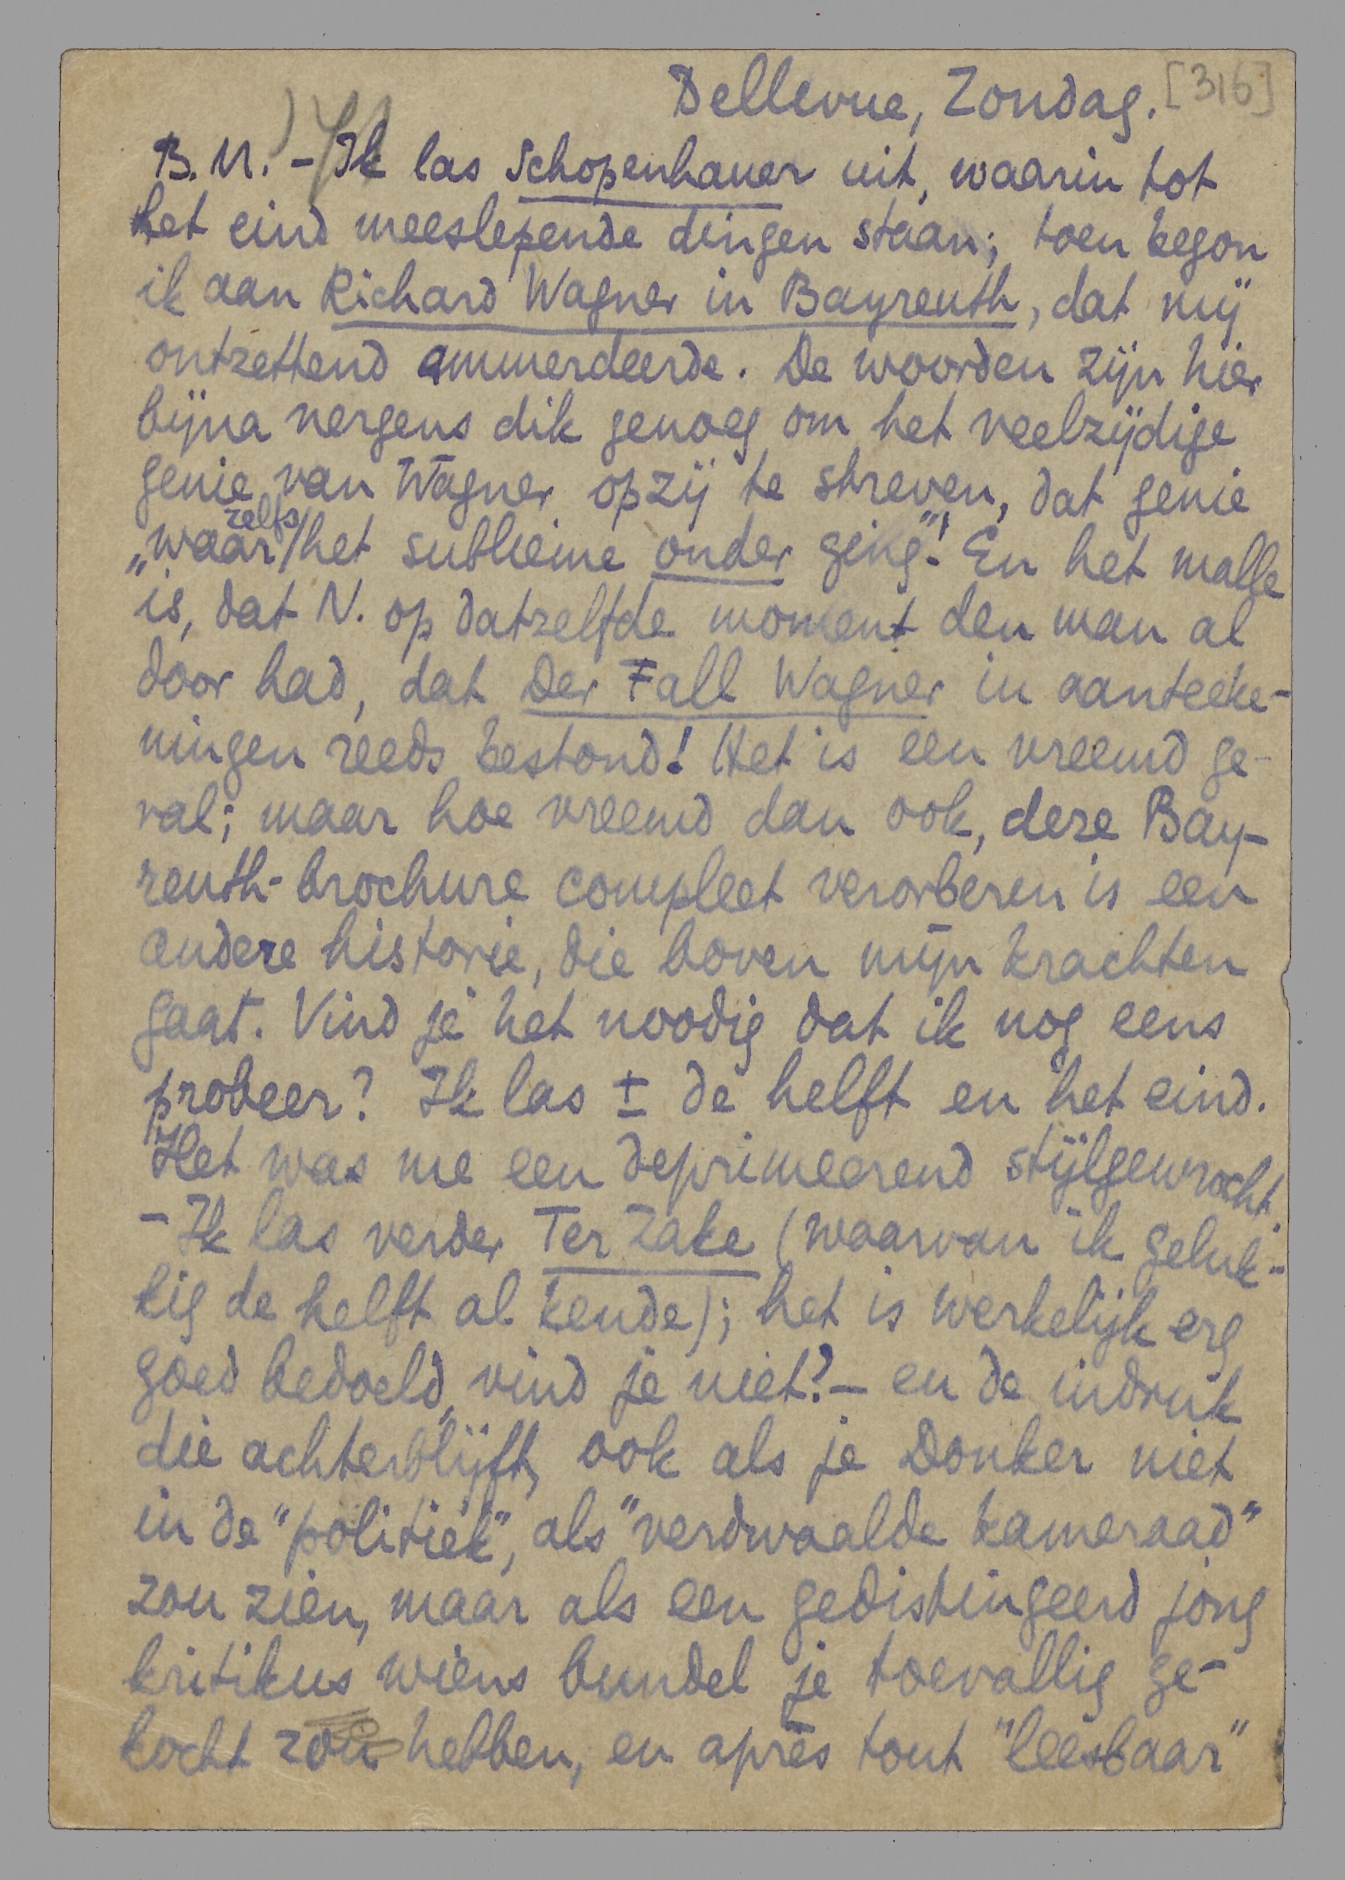 Bellevue, Zondag. [316]
B.M. - Ik las Schopenhauer uit, waarin tot
het eind meeslepende dingen staan; toen begon
ik aan Richard Wagner in Bayreuth, dat mij
ontzettend ammerdeerde. De woorden zijn hier
bijna nergens dik genoeg om het veelzijdige
genie van Wagner opzij te streven, dat genie
„waar zelfs het sublieme onder ging"! En het malle
is, dat N. op datzelfde moment den man al
door had, dat Der Fall Wagner in aanteeke-
ningen reeds bestond! Het is een vreemd ge-
val; maar hoe vreemd dan ook, deze Bay-
reuth-brochure compleet verorberen is een
andere historie, die boven mijn krachten
gaat. Vind je het noodig dat ik nog eens
probeer? Ik las ± de helft en het eind.
Het was me een deprimeerend stijlgewrocht.
- Ik las verder Ter Zake (waarvan ik geluk-
kig de helft al kende); het is werkelijk erg
goed bedoeld, vind je niet? - en de indruk
die achterblijft, ook als je Donker niet
in de "politiek", als "verdwaalde kameraad"
zou zien, maar als een gedistingeerd jong
kritikus wiens bundel je toevallig ge-
kocht zou hebben, en après tout "leesbaar"